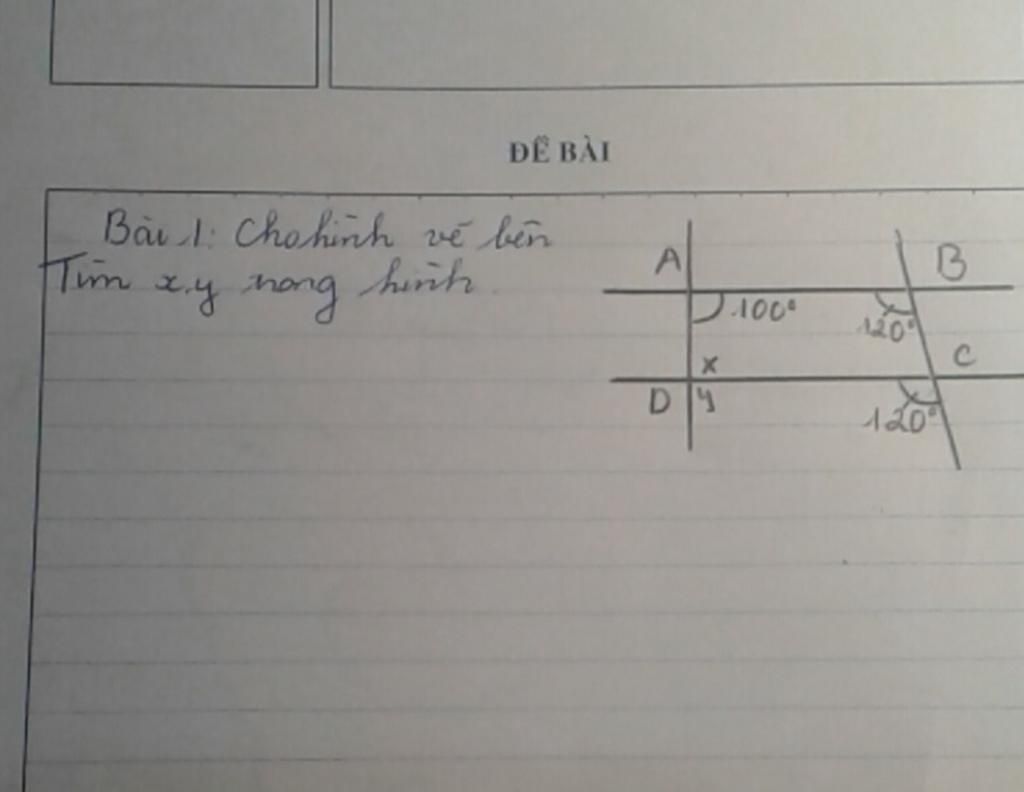 ĐỀ BÀI
Bài 1: Cho hình vẽ bên
Tìm x, y trong hình.
A
B
100°
120°
x
C
D
y
120°